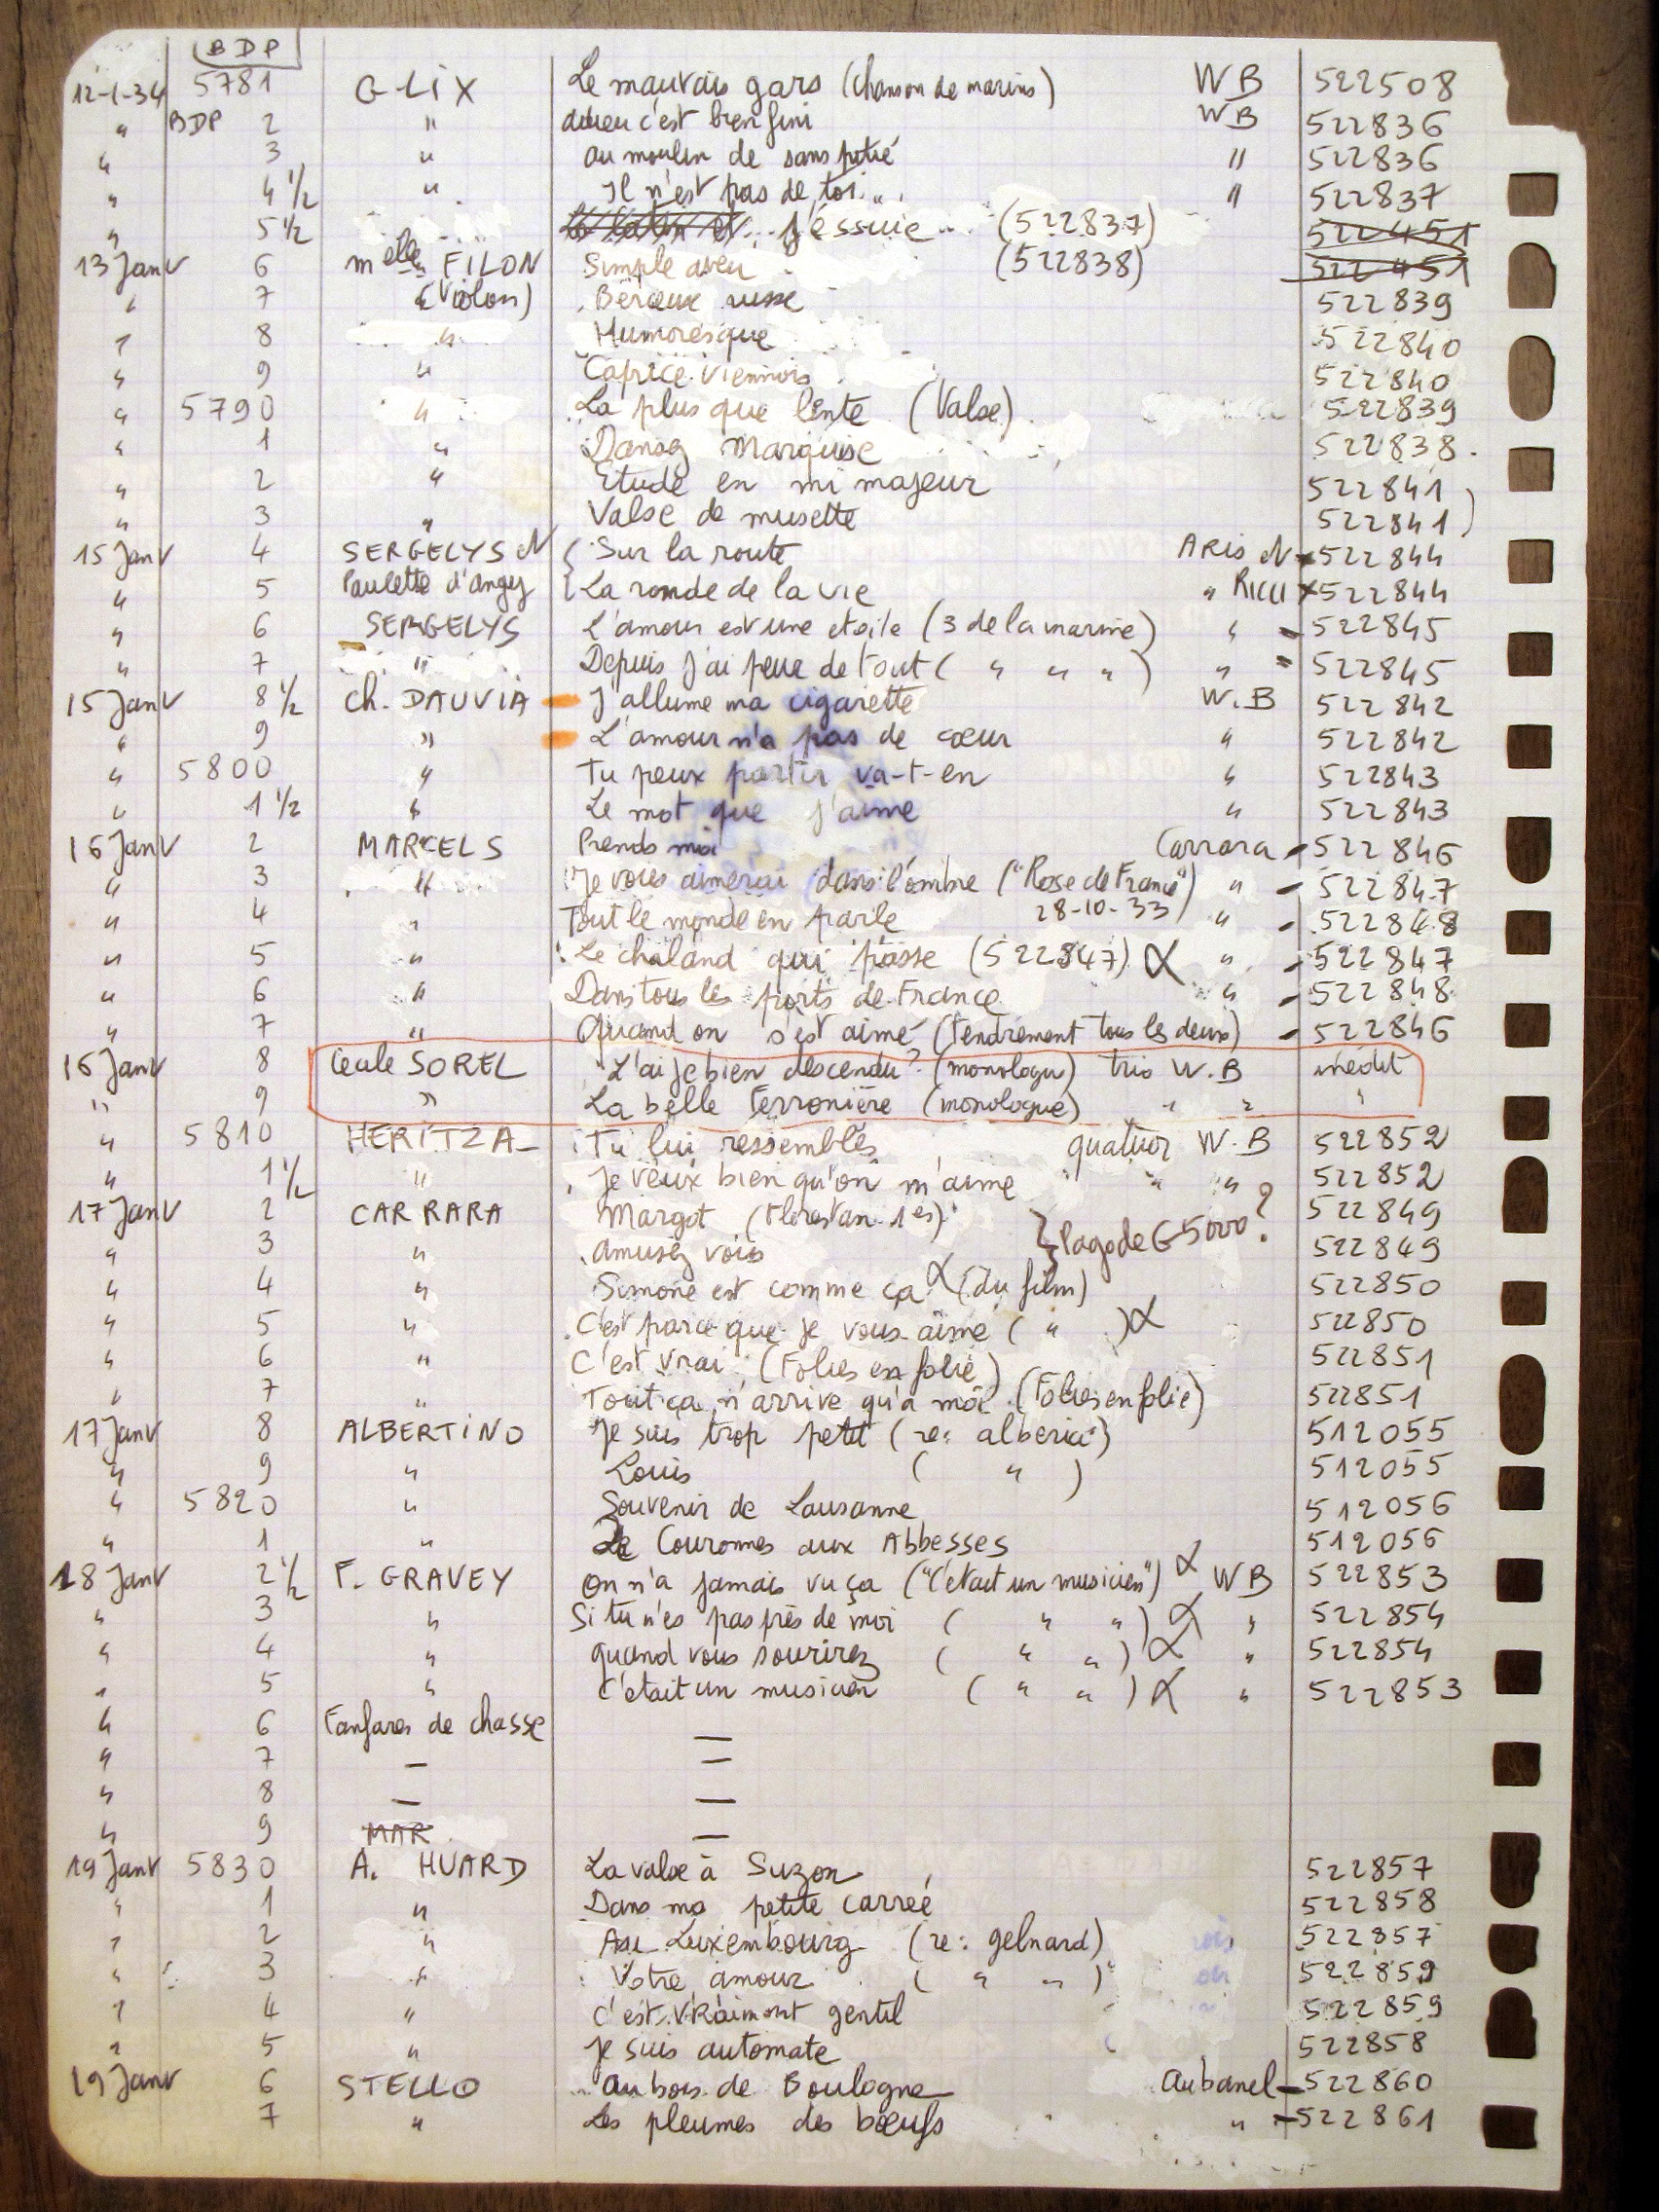 BDP
12-1-34 5781 GLIX Le mauvais gars (chanson de marins) WB 522508
" BDP 2 " adieu c'est bien fini WB 522836
" 3 " au moulin de sans pitié " 522836
" 4 1/2 " Il n'est pas de toi... " 522837
" 5 1/2 J'éssuie... (522837) 522451
13 Janv 6 Melle FILON Simple aveu (522838) 522451
" 7 (Violon) Berceuse russe 522839
" 8 " Humoresque 522840
" 9 " Caprice Viennois 522840
" 5790 " La plus que lente (Valse) 522839
" 1 " Dansez Marquise 522838.
" 2 " Etude en mi majeur 522841)
" 3 " Valse de musette 522841)
15 Janv 4 SERGELYS et ( Sur la route ARIS et 522844
" 5 Paulette d'angey ( La ronde de la vie " RICCI x522844
" 6 SERGELYS L'amour est une etoile (3 de la marine) " - 522845
" 7 " Depuis j'ai peur de tout ( " " " ) " = 522845
15 Janv 8 1/2 ch. DAUVIA - J'allume ma cigarette W.B 522842
" 9 " - L'amour n'a pas de cœur " 522842
" 5800 " Tu peux partir va-t-en " 522843
" 1 1/2 " Le mot que j'aime " 522843
16 Janv 2 MARCELS Prends moi Carrara - 522846
" 3 " Je vous aimerai dans l'ombre ("Rose de France") " - 522847
" 4 " Tout le monde en parle 28-10-33 " - 522848
" 5 " Le chaland qui passe (522847) α " - 522847
" 6 " Dans tous les ports de France " - 522848
" 7 " Quand on s'est aimé (tendrement tous les deux) - 522846
16 Janv 8 Cecile SOREL L'ai je bien descendu? (monologue) trio W.B inédit
" 9 " La belle ferronière (monologue) " " "
" 5810 HERITZA Tu lui ressembles quatuor W.B 522852
" 1 1/2 " Je veux bien qu'on m'aime " " 522852
17 Janv 2 CARRARA Margot (Florestan 1er) 522849
" 3 " amusez vous } Pagode G 5000? 522849
" 4 " Simone est comme ça α (du film) 522850
" 5 " C'est parce que je vous aime ( " ) α 522850
" 6 " C'est vrai (Folies en folie) 522851
" 7 " Tout ça n'arrive qu'à moi (Folies en folie) 522851
17 Janv 8 ALBERTINO "Je suis trop petit (re: alberici) 512055
" 9 " Louis ( " ) 512055
" 5820 " Souvenir de Lausanne 512056
" 1 " De Couronnes aux Abbesses 512056
18 Janv 2 1/2 F. GRAVEY On n'a jamais vu ça ("C'était un musicien") α WB 522853
" 3 " Si tu n'es pas près de moi ( " " ) α " 522854
" 4 " quand vous sourirez ( " " ) α " 522854
" 5 " C'etait un musicien ( " " ) α " 522853
" 6 Fanfares de chasse —
" 7 — =
" 8 — —
" 9 MAR —
19 Janv 5830 A. HUARD La valse à Suzon 522857
" 1 " Dans ma petite carreé 522858
" 2 " Au Luxembourg (re: gelnard) 522857
" 3 " Votre amour ( " " ) 522859
" 4 " C'est vraiment gentil 522859
" 5 " Je suis automate 522858
19 Janv 6 STELLO au bois de Boulogne Aubanel - 522860
" 7 " Les pleumes des bœufs " - 522861